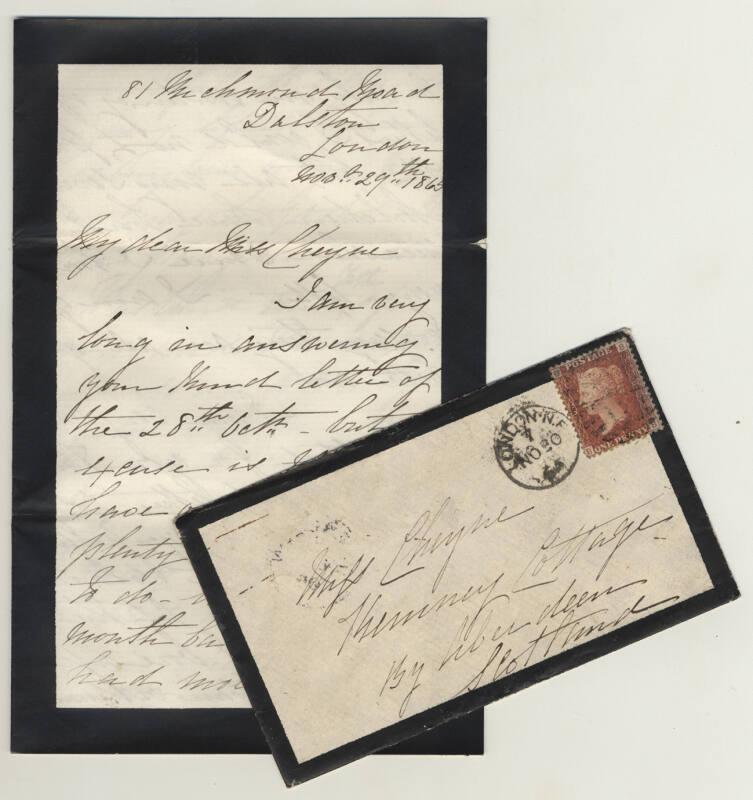 81 Richmond Road
Dalston
London
Nov. 29th 1865
My dear Miss Cheyne
I am very
long in answering
your kind letter of
the 28th Octr - but
excuse is
have
plenty
to do -
month
had
POSTAGE
LONDON·N.E
NO 30
Miss Cheyne
Kemnay Cottage
By Aberdeen
Scotland